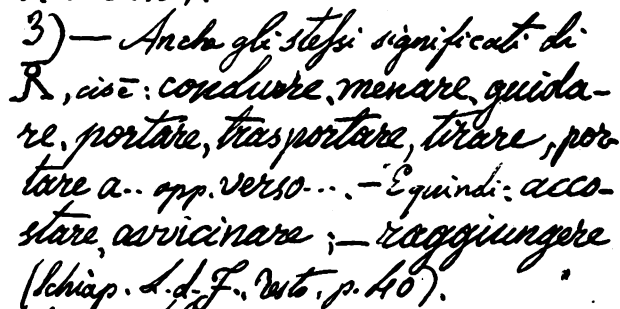 3)— Anche gli stessi significati di
R̊, cioè: condurre, menare, guida-
re, portare, trasportare, tirare, por-
tare a.. opp. verso.... — E quindi: acco-
stare, avvicinare; — raggiungere
(Schiap. L. d. F., Testo, p. 40).